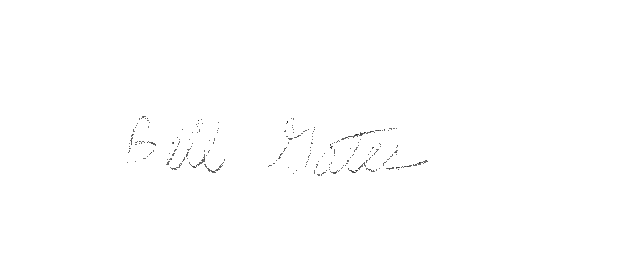 Bill Gates